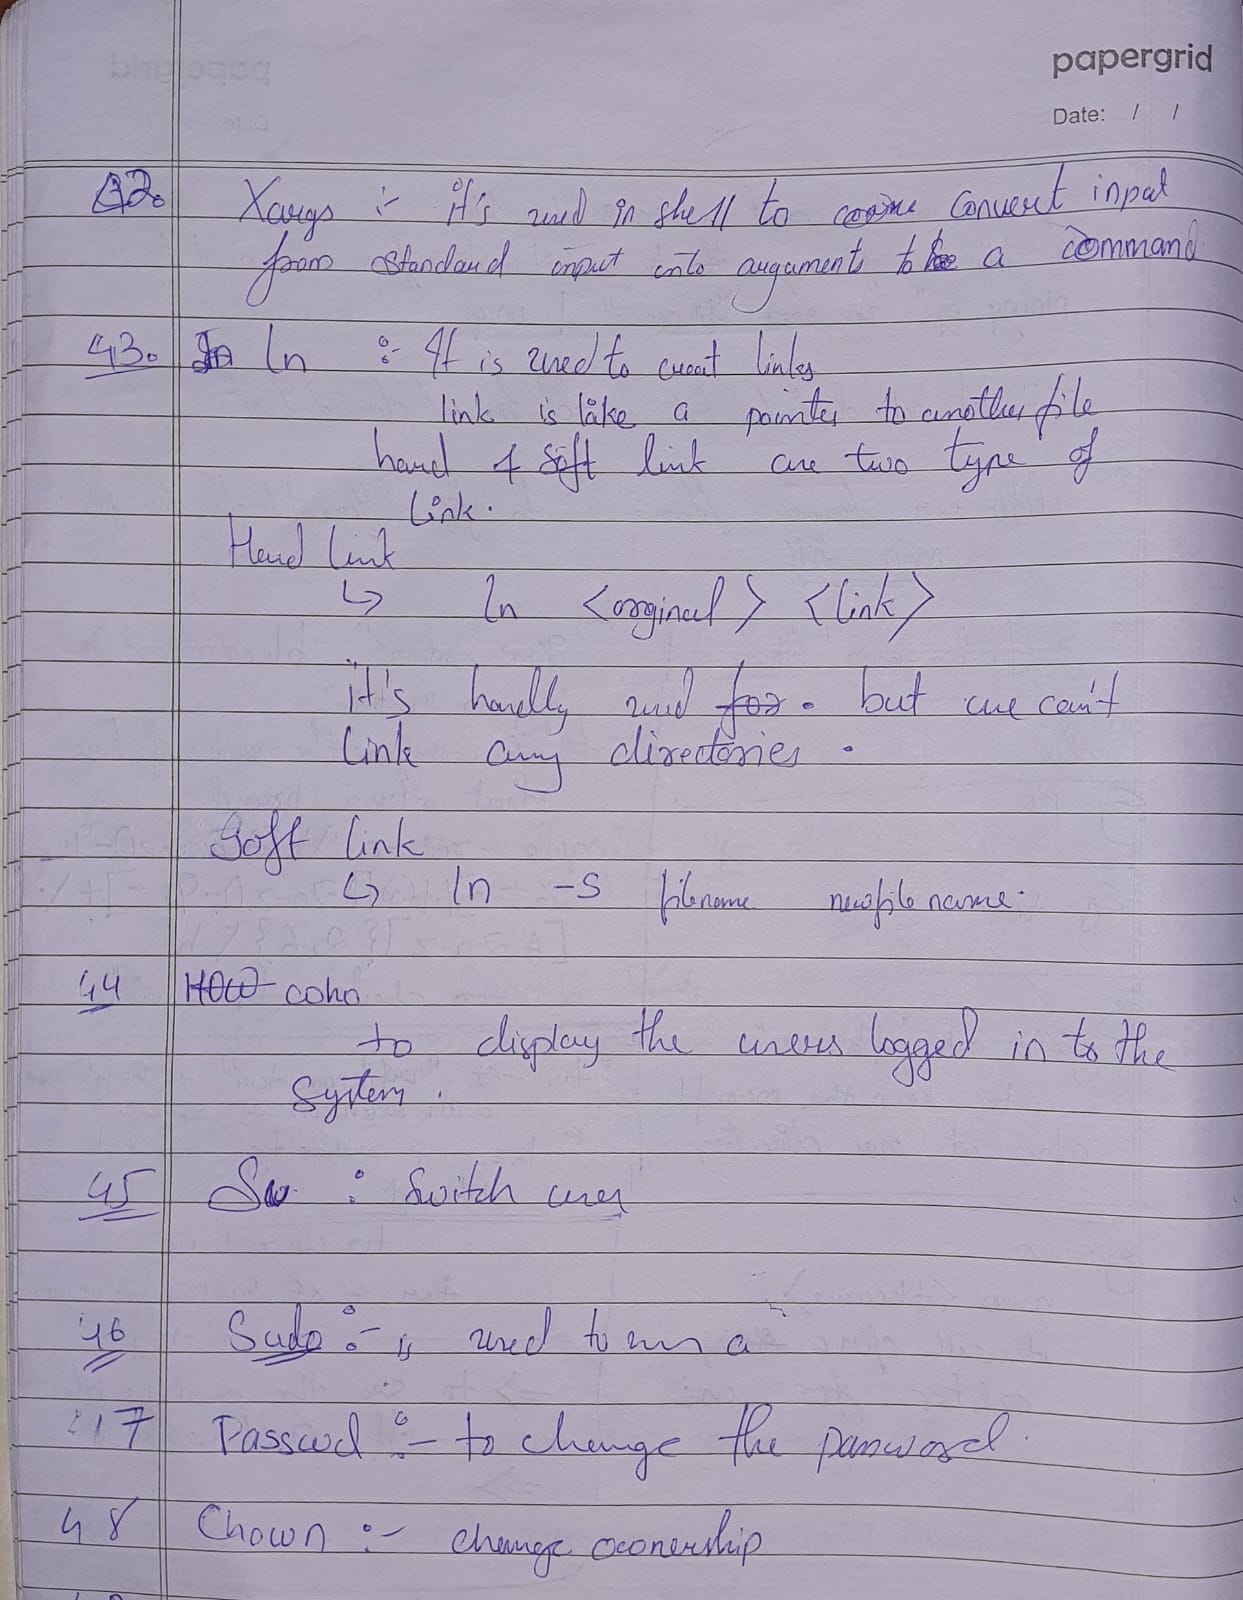 papergrid
Date: / /
42. Xargs :- it's used in shell to convert input
from standard input into argument to a command
43. ln :- It is used to creat links
link is like a pointer to another file
hard & soft link are two type of
link.
Hard link
↳ ln <orginal> <link>
it's hardly used for. but we can't
link any directories.
Soft link
↳ ln -s filename newfile name.
44 HOW who
to display the users logged in to the
system.
45 Su : Switch user
46 Sudo :- is used to run a
47 Passwd :- to change the password.
48 Chown :- change ownership